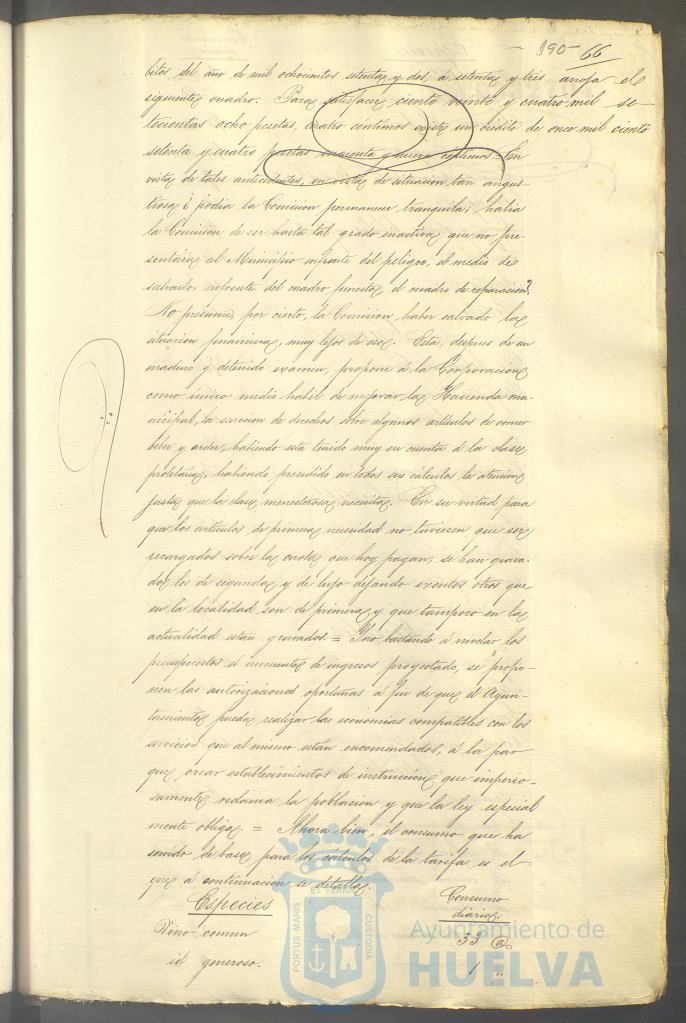 - 190 - 66
bitos del año de mil ochocientos setenta y dos, á setenta y tres arroja el
siguiente cuadro. Para satisfacer ciento veinte y cuatro mil se-
tecientas ocho pesetas, cuatro céntimos existe un crédito de once mil ciento
setenta y cuatro pesetas cincuenta y nueve céntimos = En
vista de tales antecedentes, en vista de situacion tan angus-
tiosa ¿podia la Comision permanecer tranquila; habia
la Comision de ser hasta tal grado inactiva que no pre-
sentára al Municipio enfrente del peligro, el medio de
salvarlo enfrente del cuadro funesto el cuadro de reparacion?
No presume, por cierto, la Comision, haber salvado la
situacion financiera, muy lejos de eso. Esta, despues de un
maduro y detenido examen, propone á la Corporacion
como único medio habil de mejorar la Hacienda mu-
nicipal, la esaccion de derechos sobre algunos artículos de comer
beber y arder, habiendo esta tenido muy en cuenta á la clase
proletaria, habiendo presidido en todos sus cálculos la atencion
justa que la clase menesterosa necesita. En su virtud para
que los artículos de primera necesidad no tuvieren que ser
recargados sobre la cuota que hoy pagan, se han grava-
do los de segunda y de lujo dejando exentos otros que
en la localidad son de primera y que tampoco en la
actualidad estan gravados. = Y no bastando á nivelar los
presupuestos el aumento de ingresos proyectado, se propo-
nen las autorizaciones oportunas á fin de que el Ayun-
tamiento pueda realizar las economias compatibles con los
servicios que al mismo están encomendados, á la par
que crear establecimientos de instruccion que imperio-
samente reclama la poblacion y que la ley especial
mente obliga. = Ahora bien, el consumo que ha
servido de base para los cálculos de la tarifa es el
que á continuacion se detalla.
Especies Consumo
diario.
Vino comun 33 @
id generoso. 1 "
PORTUS MARIS ET TERRAE CUSTODIA
Ayuntamiento de
HUELVA